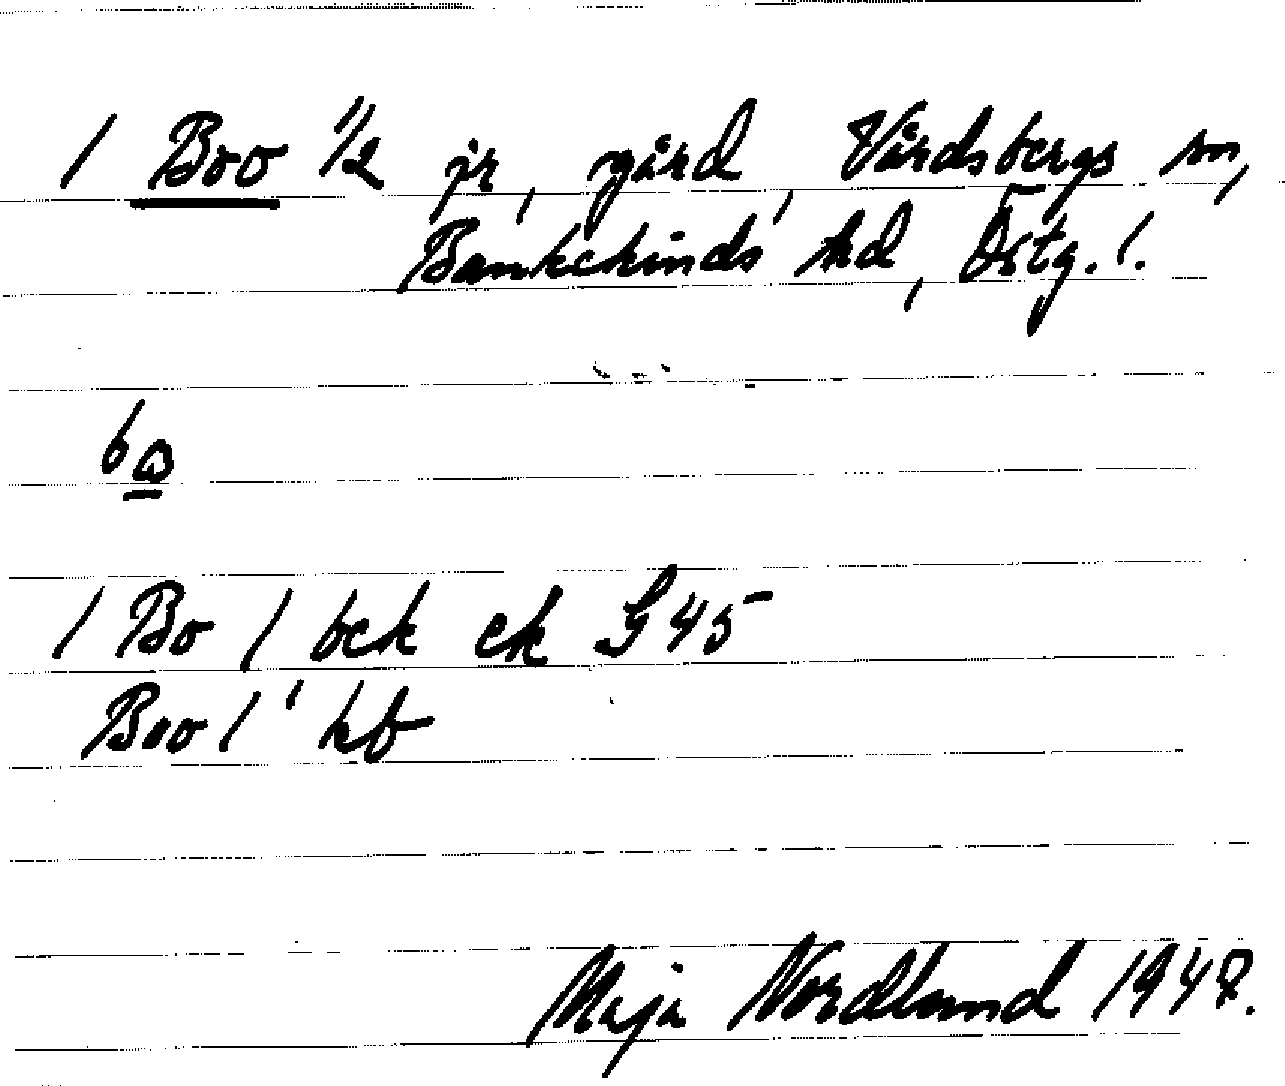 1 Boo 1/2 jr, gård, Vårdsbergs sn,
Bankekinds hd, Östg. l.
bo
1 Bo 1 bek ek G 45
Boo 1 hf
Maja Nordlund 1948.